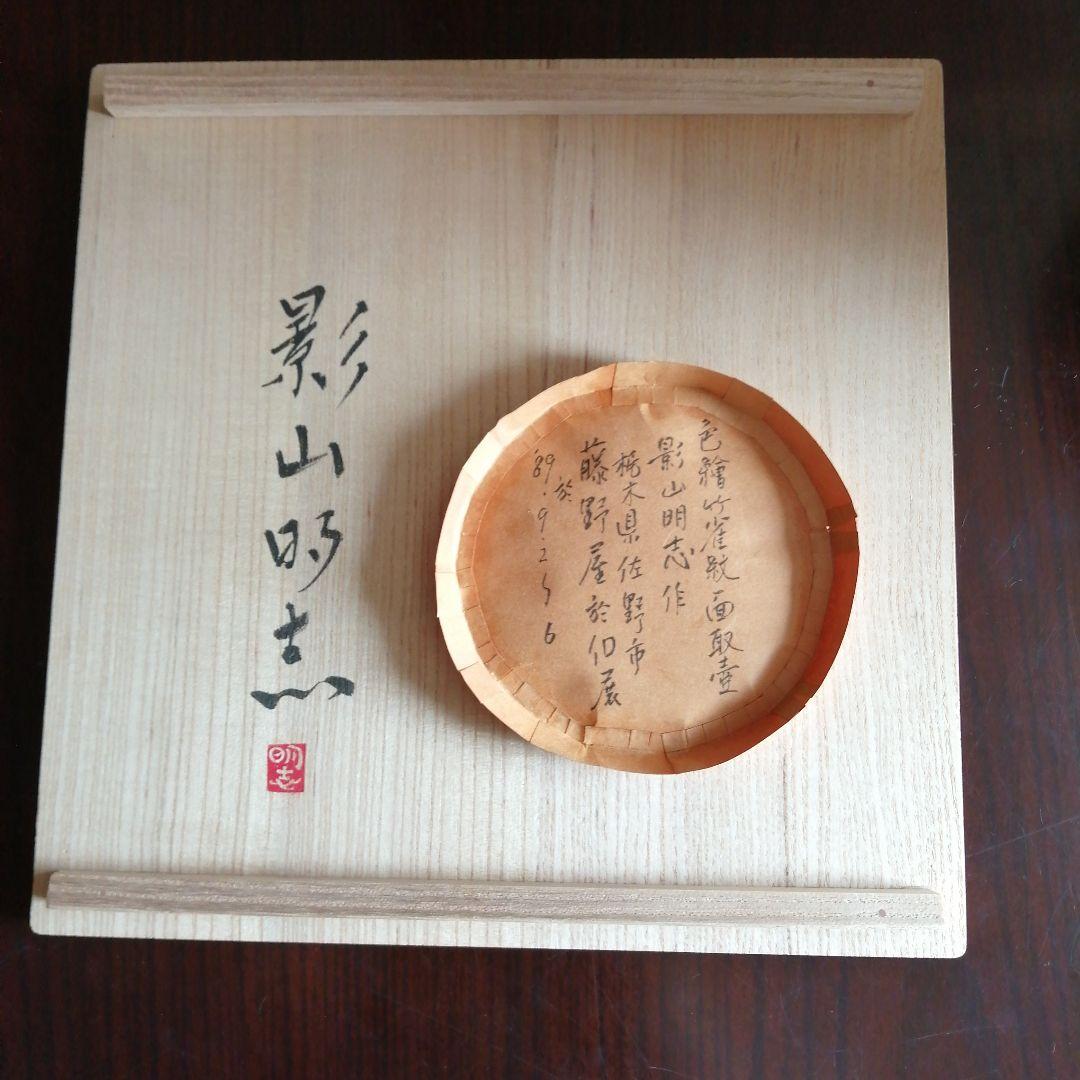 影山明志
明志
色繪竹雀紋面取壺
影山明志作
栃木県佐野市
藤野屋於個展
於
'89.9.2〜6